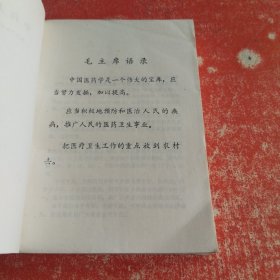 毛主席语录
中国医药学是一个伟大的宝库，应
当努力发掘，加以提高。
应当积极地预防和医治人民的疾
病，推广人民的医药卫生事业。
把医疗卫生工作的重点放到农村
去。